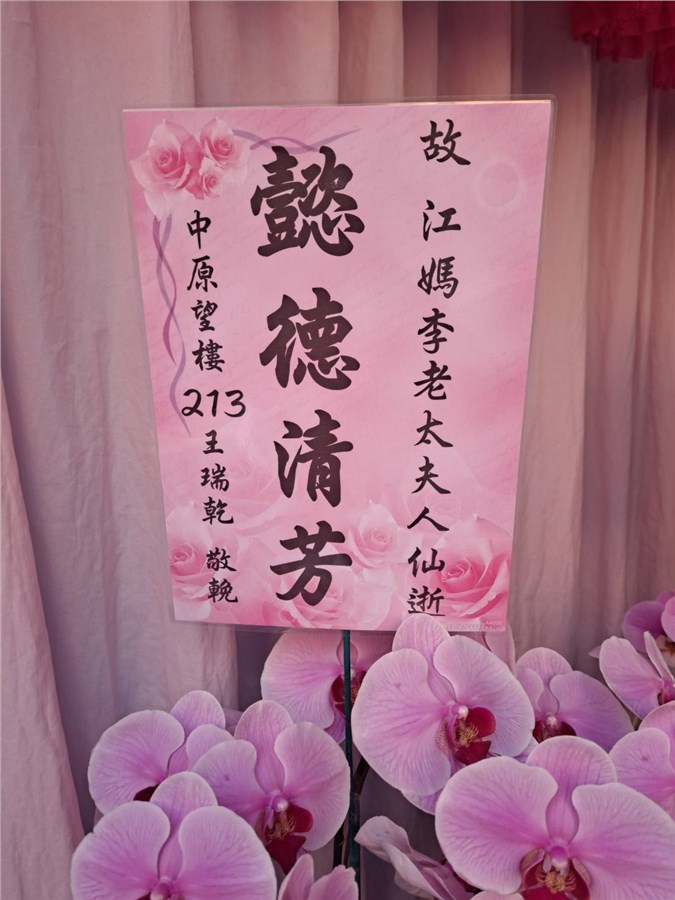 故 江媽李老太夫人仙逝
懿德清芳
中原望樓213王瑞乾 敬輓